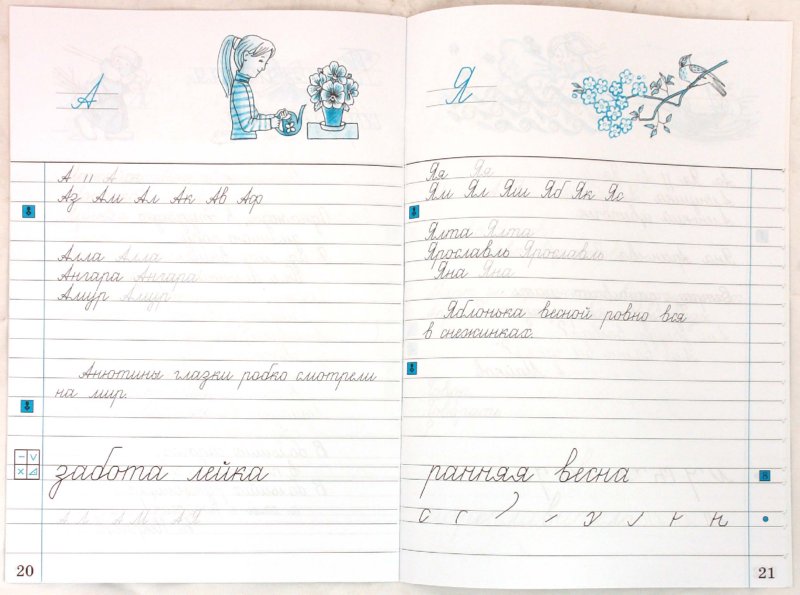 А
А ıı А
Аз Ам Ал Ак Ав Аф
Алла Алла
Ангара Ангара
Амур Амур
Анютины глазки робко смотрели
на мир.
забота лейка
20
Я
Яя Яя
Ям Ял Яш Яб Як Яс
Ялта Ялта
Ярославль Ярославль
Яна Яна
Яблонька весной ровно вся
в снежинках.
ранняя весна
21